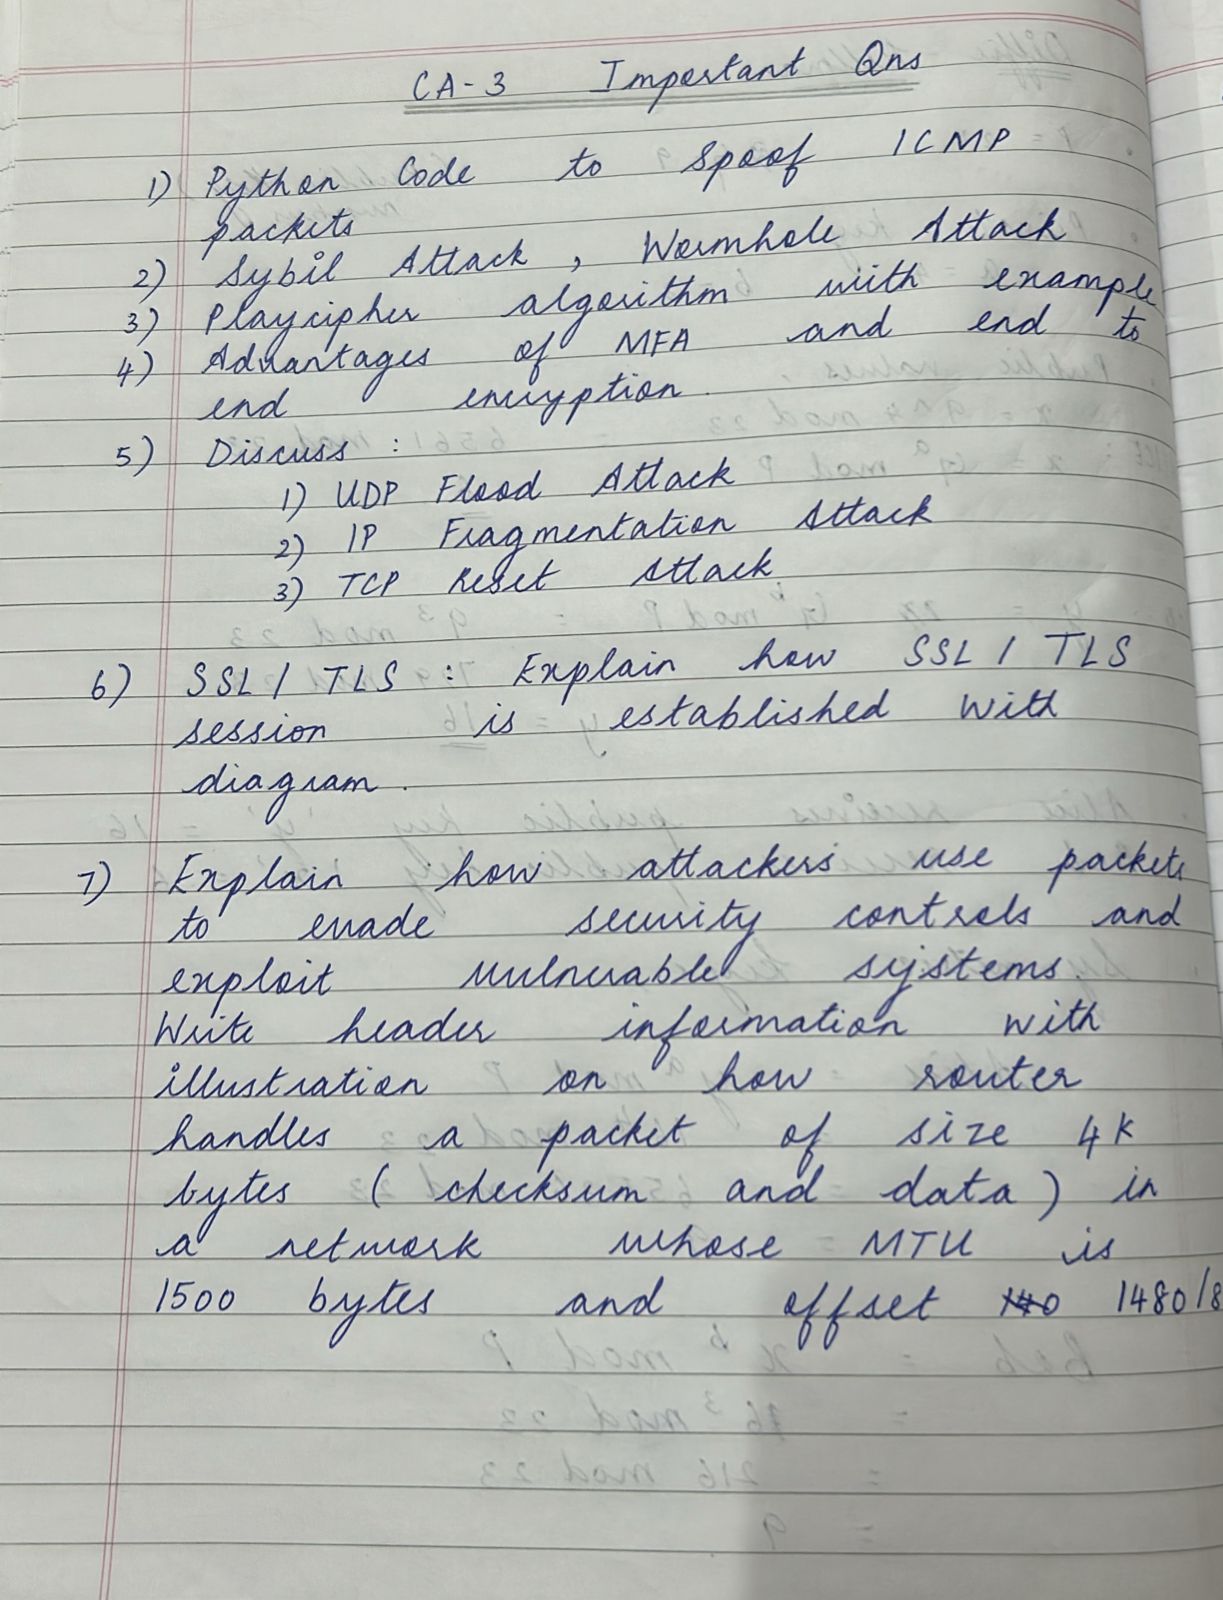 CA-3 Important Qns
1) Python Code to Spoof ICMP
packets
2) Sybil Attack, Wormhole Attack
3) Playcipher algorithm with example
4) Advantages of MFA and end to
end encryption.
5) Discuss :
1) UDP Flood Attack
2) IP Fragmentation Attack
3) TCP Reset Attack
6) SSL / TLS : Explain how SSL / TLS
session is established with
diagram.
7) Explain how attackers use packets
to evade security controls and
exploit vulnerable systems.
Write header information with
illustration on how router
handles a packet of size 4K
bytes (checksum and data) in
a network whose MTU is
1500 bytes and offset 1480/8